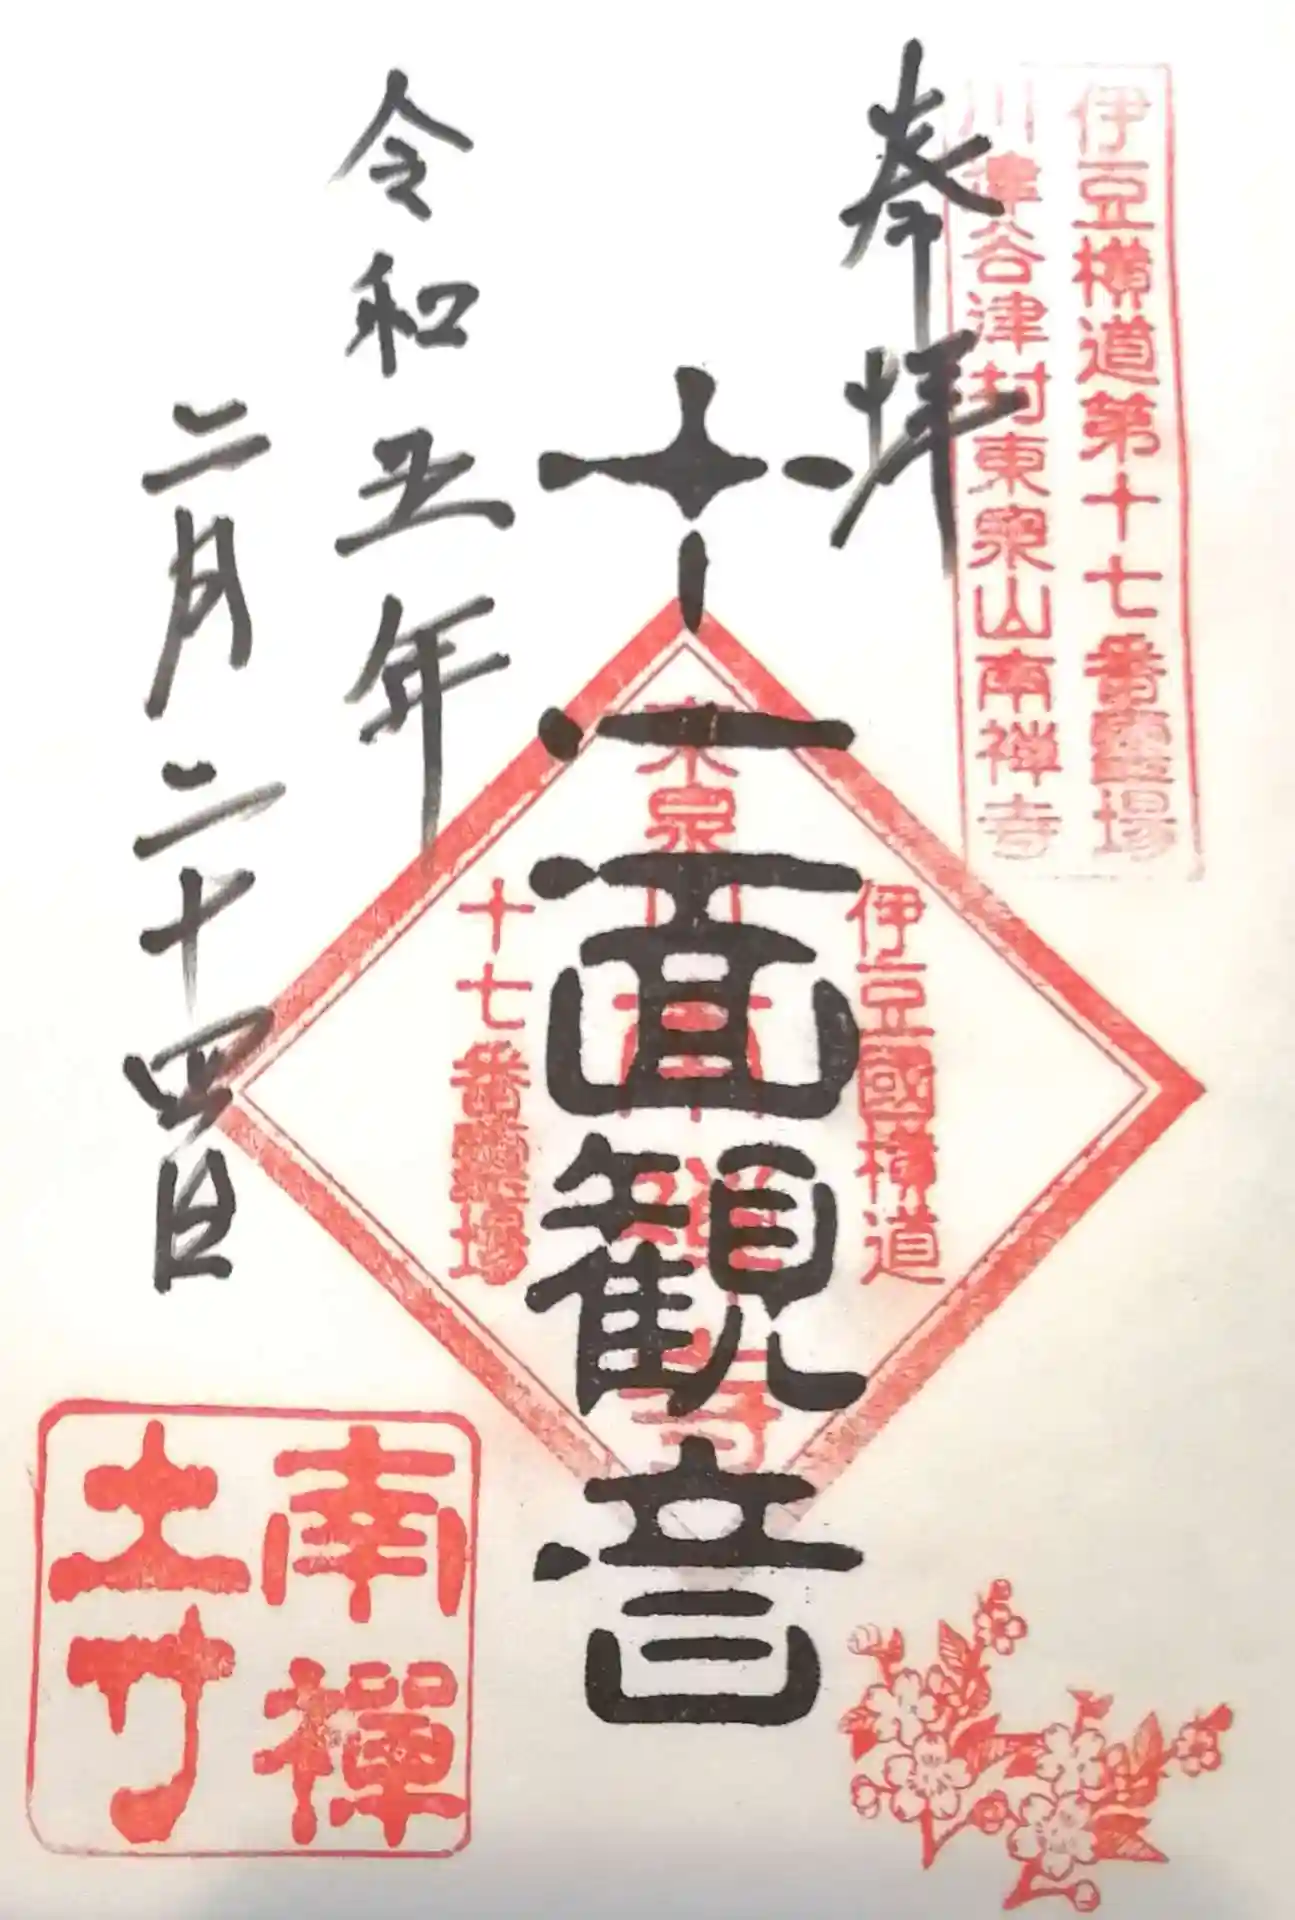 伊豆横道第十七番霊場
川津谷津村東泉山南禅寺
奉拝
十一面観音
伊豆國横道
東泉山南禅寺
十七番霊場
令和五年
二月二十四日
南禅
寺